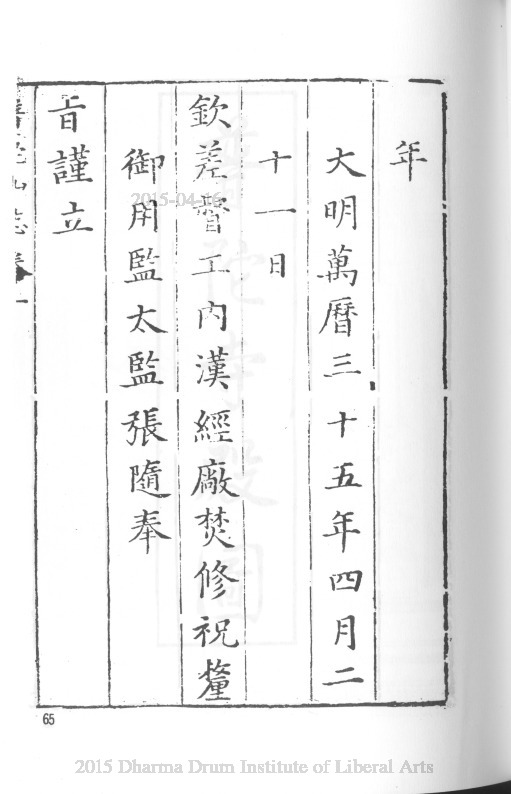 年
大明萬曆三十五年四月二
十一日
欽差督工内漢經廠焚修祝釐
御用監太監張隨奉
旨謹立
普陀山志卷一
65
2015-04-16
2015 Dharma Drum Institute of Liberal Arts